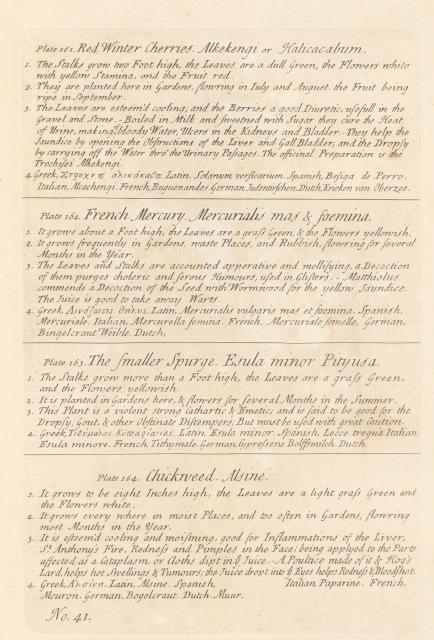 Plate 161. Red Winter Cherries. Alkekengi or Halicacabum.
1. The Stalks grow two Foot high, the Leaves are a dull Green, the Flowers white
with yellow Stamina, and the Fruit red.
2. They are planted here in Gardens, flowring in July and August. the Fruit being
ripe in September.
3. The Leaves are esteem'd cooling, and the Berries a good Diuretic, usefull in the
Gravel and Stone. - Boiled in Milk and sweetned with Sugar they cure the Heat
of Urine, making bloody Water, Ulcers in the Kidneys and Bladder. - They help the
Jaundice by opening the Obstructions of the Liver and Gall Bladder, and the Dropsy
by carrying off the Water thro' the Urinary Passages. The officinal Preparation is the
Trochisci Alkekengi.
4. Greek, Latin, Solanum vesicarium. Spanish, Besiga de Perro.
Italian, Alcachengi. French, Baguenandes. German, Judenkirschen. Dutch, Kricken van Oberzee.
Plate 164. French Mercury. Mercurialis mas & fœmina.
1. It grows about a Foot high, the Leaves are a grass Green, & the Flowers yellowish.
2. It grows frequently in Gardens, waste Places, and Rubbish, flowring for several
Months in the Year.
3. The Leaves and Stalks are accounted apperative and mollifying, a Decoction
of them purges choleric and serous Humours, used in Glisters. - Matthiolus
commends a Decoction of the Seed with Wormwood for the yellow Jaundice.
The Juice is good to take away Warts.
4. Greek, Latin, Mercurialis vulgaris mas et fœmina. Spanish,
Mercuriale. Italian, Mercurella femina. French, Mercuriale femelle. German,
Bingelcraut Weible. Dutch,
Plate 163. The smaller Spurge. Esula minor Pityusa.
1. The Stalks grow more than a Foot high, the Leaves are a grass Green,
and the Flowers yellowish.
2. It is planted in Gardens here, & flowers for several Months in the Summer.
3. This Plant is a violent strong Cathartic & Emetic; and is said to be good for the
Dropsy, Gout, & other Obstinate Distempers. But must be used with great Caution.
4. Greek, Latin, Esula minor. Spanish, Lecce trequa. Italian,
Esula minore. French, Tithymale. German, Cypressene Bolffsmilch. Dutch.
Plate 164. Chickweed. Alsine.
1. It grows to be eight Inches high, the Leaves are a light grass Green and
the Flowers white.
2. It grows every where in moist Places, and too often in Gardens, flowring
most Months in the Year.
3. It is esteem'd cooling and moistning, good for Inflammations of the Liver,
St. Anthony's Fire, Redness and Pimples in the Face; being applyed to the Parts
affected as a Cataplasm, or Cloths dipt in ye Juice. - A Poultice made of it & Hog's
Lard, helps hot Swellings & Tumours; the Juice dropt into ye Eyes helps Redness & Bloodshot.
4. Greek, Αλσινη. Latin, Alsine. Spanish, Italian, Paparine. French,
Mouron. German, Bogelcraut. Dutch, Muur.
No. 41.